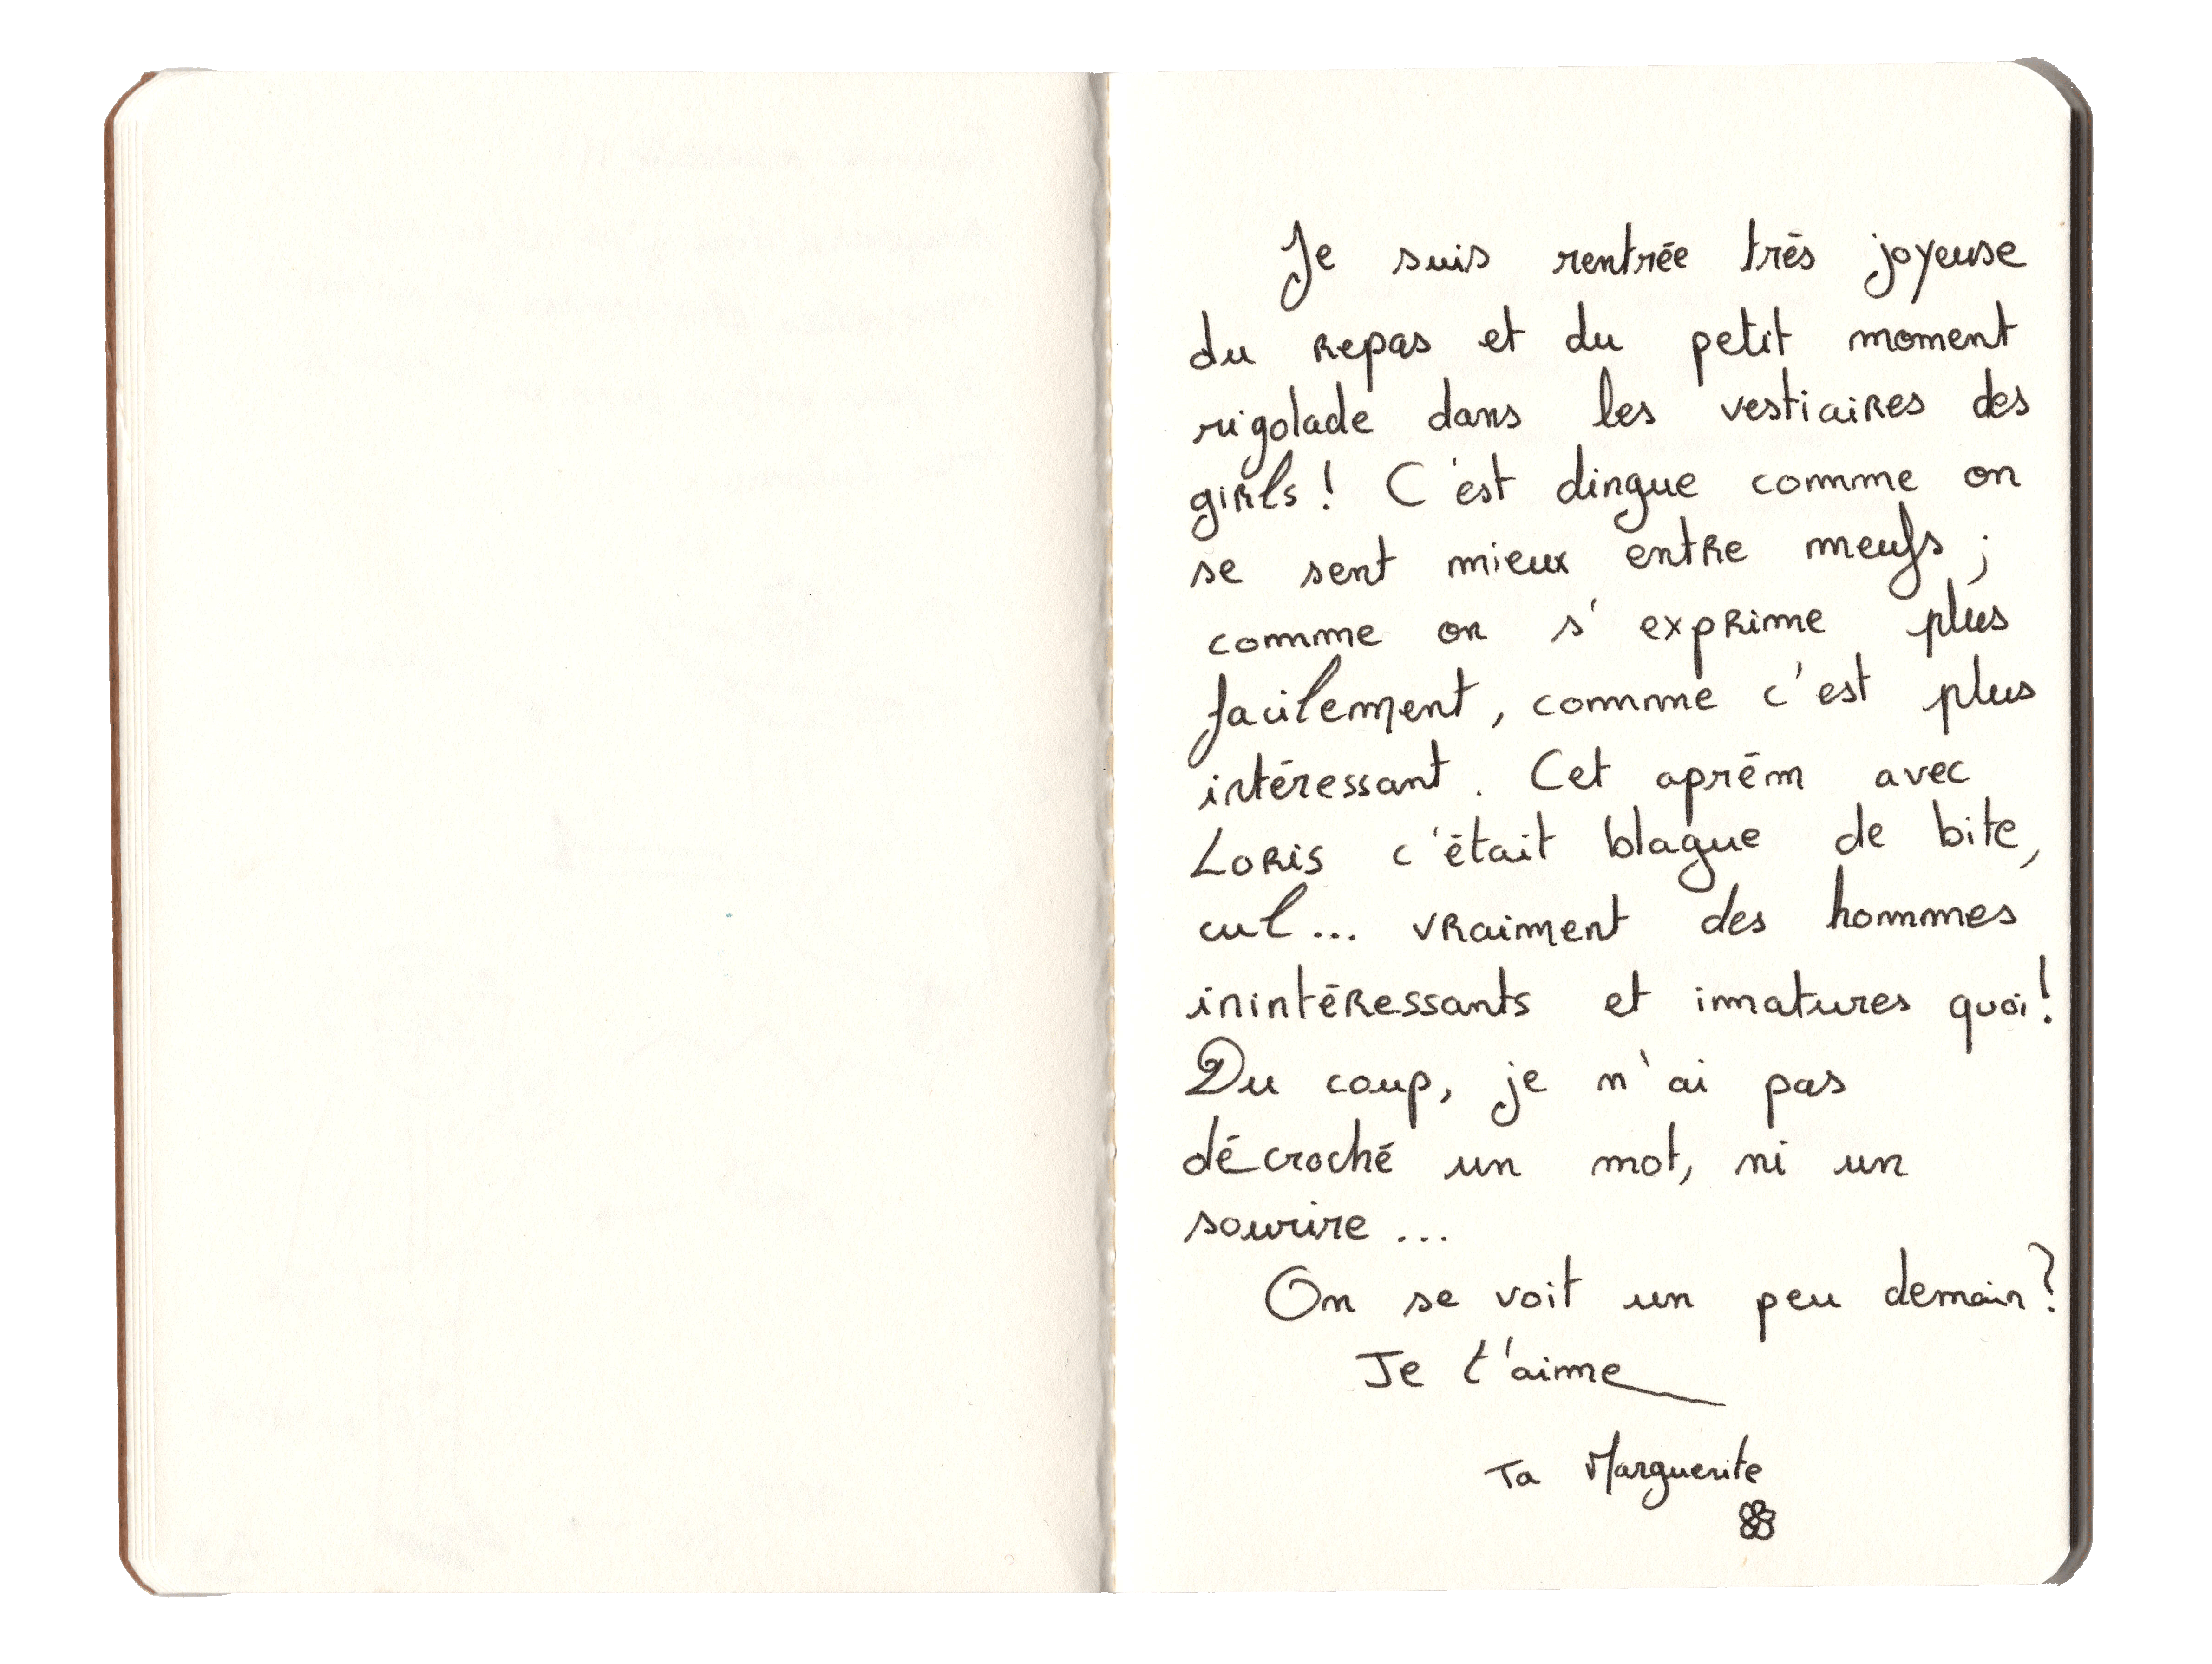 Je suis rentrée très joyeuse
du repas et du petit moment
rigolade dans les vestiaires des
girls ! C'est dingue comme on
se sent mieux entre meufs ;
comme on s'exprime plus
facilement, comme c'est plus
intéressant. Cet aprém avec
Loris c'était blague de bite,
cul... vraiment des hommes
inintéressants et immatures quoi !
Du coup, je n'ai pas
décroché un mot, ni un
sourire...
On se voit un peu demain ?
Je t'aime
Ta Marguerite